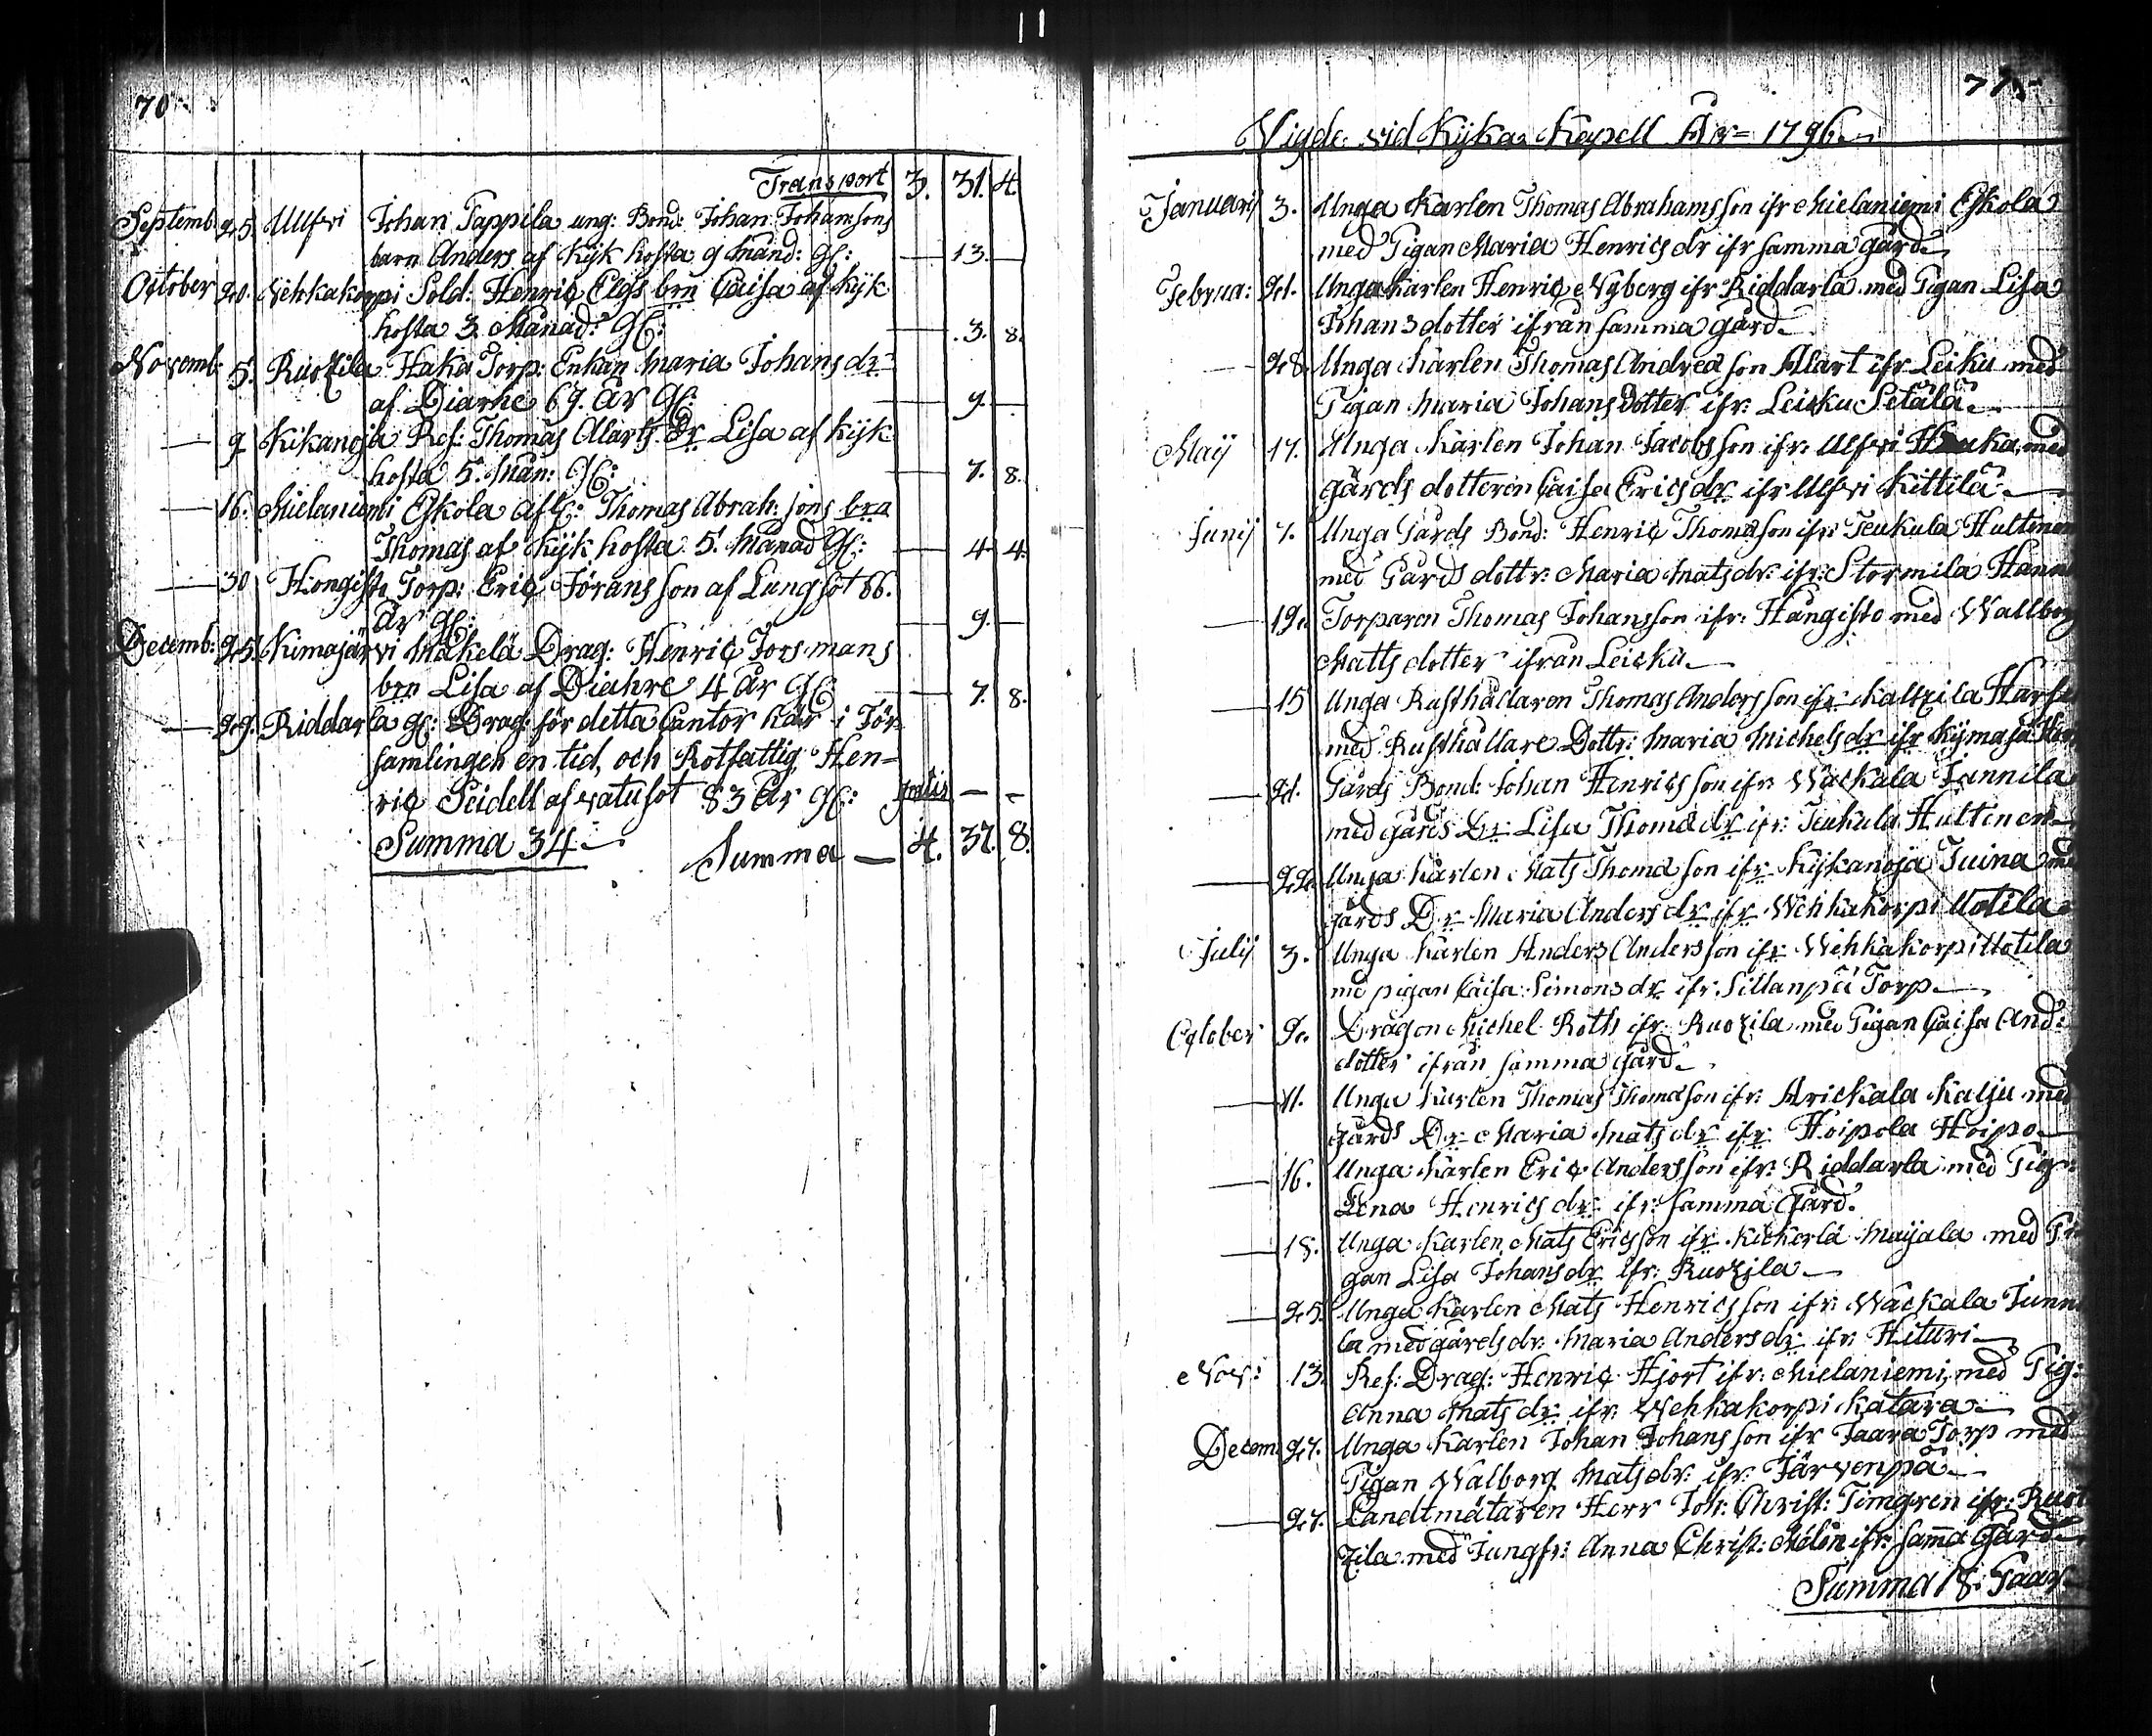 70
Transport 3. 31. 4.
Septemb: 25 Ulfvi Johan Pappila ung: Bond: Johan Johanssons
barn Anders af Kijk hosta 9 Månad: gl: — 13. —
October 20. Wehkakorpi Sold: Henric Elgs brn Caisa af Kijk
hosta 3 Månad: gl: — 3. 8.
Novemb: 5. Ruotzila Haka Torp: Enkan Maria Johans dr
af Diarhe 67. År gl: — 9. —
— 9 Kikanoja Ref: Thomas Alarts Dr Lisa af Kijk
hosta 5. Mån: gl: — 7. 8.
— 16. Mielaniemi Eskola afl: Thomas Abrah: sons brn
Thomas af Kijk hosta 5. Månad gl: — 4. 4.
— 30 Hongisto Torp: Eric Jöransson af Lungsot 86.
År gl: — 9. —
Decemb: 25. Kimajärvi Mäkelä Drag: Henric Forsmans
brn Lisa af Diahre 4 År gl: — 7. 8.
— 29. Riddarla gl: Drag: för detta Cantor här i För
samlingen en tid, och Rotfattig Hen=
ric Seidell af vatusot 83 År gl: gratis — —
Summa 34 Summa — 4. 37. 8.
71
Vigde vid Kijka Kapell År 1796
Januarij 3. Unga Karlen Thomas Abrahamsson ifr Mielaniemi Eskola
med Pigan Maria Henrics dr ifr samma gård
Februa: 21. Unga Karlen Henric Nyberg ifr Riddarla med Pigan Lisa
Johans dotter ifrån samma gård
— 28. Unga Karlen Thomas Andreason Alart ifr Leiku med
Pigan Maria Johans Dotter ifr: Leicku Setälä
Maij 17. Unga Karlen Johan Jacobsson ifr: Ulfvi Hauka med
gårds dotteren Caisa Erics dr ifr Ulfvi Kittilä
Junij 7. Unga Gårds Bond: Henric Thomason ifr: Teukula Hultinen
med Gårds dottr: Maria Mats dr: ifr: Stormila Hann
— 12. Torparen Thomas Johansson ifr: Hångisto med Wallborg
Matts dotter ifrån Leicku
— 15 Unga Rusthållaren Thomas Andersson ifr Maltzila Harf
med Rusthållare Dottr: Maria Michels dr ifr Kijmajä
— 21. Gårds Bond: Johan Henricsson ifr: Wackala Jannila
med gårds Dr: Lisa Thoma dr ifr: Teukula Hultinen
— 22. Unga Karlen Mats Thomason ifr Kijkanoja Tuina med
gårds Dr Maria Anders dr ifr Wehkakorpi Uotila
Julij 3. Unga Karlen Anders Andersson ifr Wehkakorpi Uotila
me pigan Caisa Simons dr ifr: Sillanpä Torp
October 2. Dragon Michel Roth ifr Ruotzila med Pigan Caisa And:
dotter ifrån samma gård
— 11. Unga Karlen Thomas Thomason ifr: Arickala Kalju med
gårds Dr Maria Mats dr ifr Hoipola Hoipo
— 16. Unga Karlen Eric Andersson ifr: Riddarla med Pig:
Lena Henrics dr: ifr: samma Gård.
— 18. Unga Karlen Mats Ericsson ifr Kickerlä Maijala med Pi
gan Lisa Johans dr ifr: Ruotzila
— 25. Unga Karlen Mats Henricsson ifr: Wackala Junni
la med gårds dr: Maria Anders dr: ifr: Hituri
Nov: 13. Ref: Drag: Henric Hjort ifr: Mielaniemi, med Pig:
Anna Mats dr ifr: Wehkakorpi Katara
Decem: 27. Unga Karlen Johan Johansson ifr Taara Torp med
Pigan Walborg Mats dr: ifr: Järvenpä
— 27. Landtmätaren Herr Joh: Christ: Timgren ifr: Ruot
zila med Jungfr: Anna Christ: Melin ifr: samma Gård
Summa 18: Paar